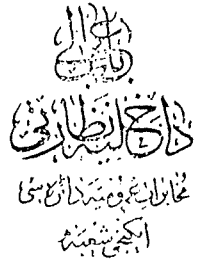 باب عالی
داخلیه نظارتی
مخابرات عمومیه دائره سی
ایکنجی شعبه